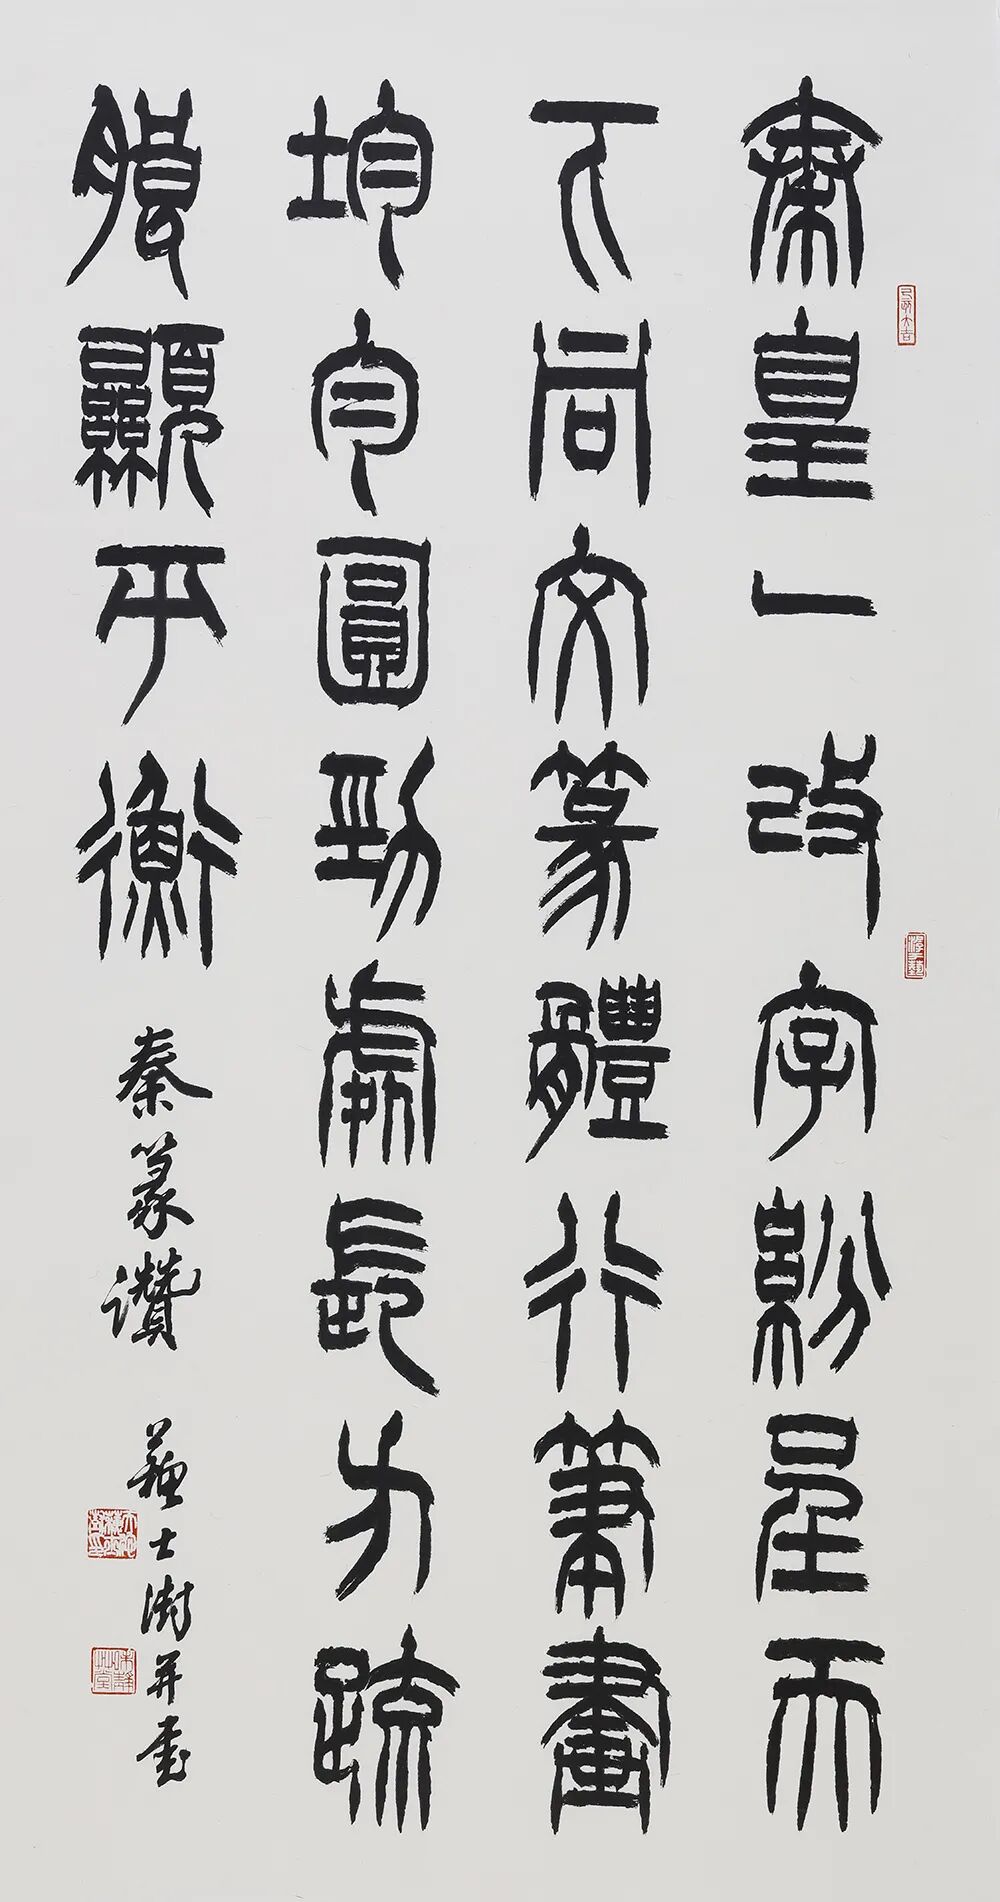 秦皇一改字紛呈天
下同文篆體行筆畫
均勻圓勁處長方疏
朗顯平衡 秦篆讚 蘇士澍并書